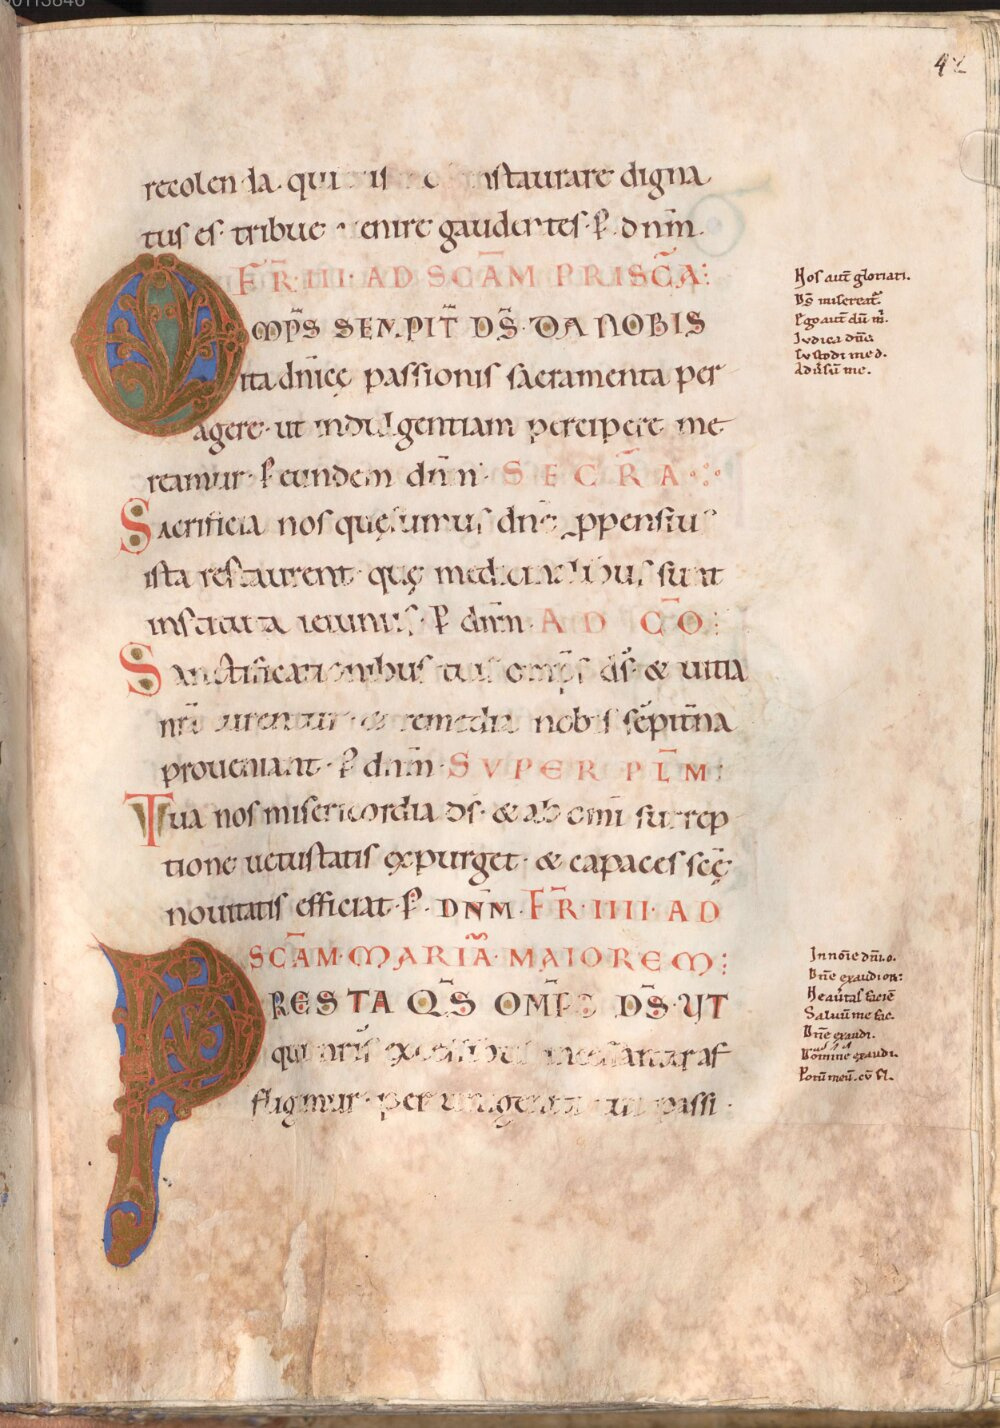 00113846
42
recolenda. qui staurare digna
tus es. tribue uenire gaudentes. P dnm.
FR. III. AD SCAM PRISCA:
OMPS SEMPIT DS. DA NOBIS
ita dnicę passionis sacramenta per
agere. ut indulgentiam percipere me
reamur. P eundem dnm. SECRA.
Sacrificia nos quęsumus dne ppensius
ista restaurent. quę medicinalibus sunt
instituta ieiuniis. P dnm. AD CO:
Sanctificationibus tuis omps ds. & uitia
nra curentur. & remedia nobis sepitna
proueniant. P dnm. SVPER PLM:
Tua nos misericordia ds. & ab omi surrep
tione uetustatis expurget. & capaces scę
nouitatis efficiat. P. DNM. FR. IIII. AD
SCAM. MARIA. MAIOREM:
PRESTA QS OMPS DS. UT
qui nris excessibus incessanter af
fligimur. per unigeniti tui passi
Nos aut gloriari.
Ds misereat.
Ego aut dū m.
Iudica dne
Custodi me d.
In noīe dni. o.
Dne exaudi or:
Ne auertas faciē
Saluū me fac.
Dne exaudi.
Domine exaudi.
Potū meū. cū fl.